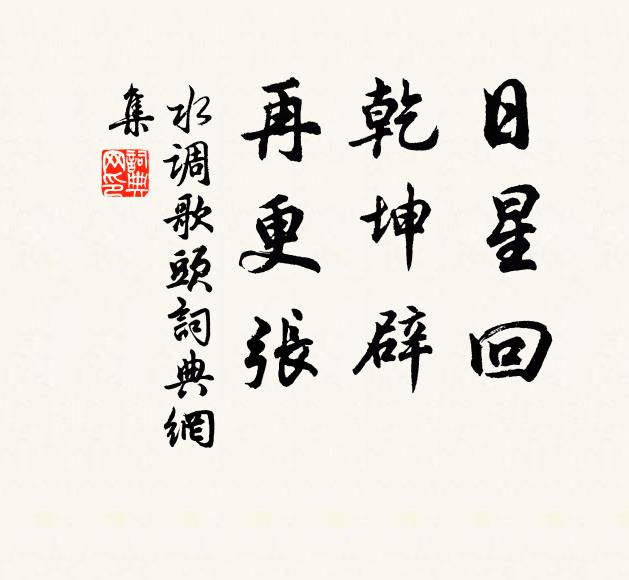 日星回
乾坤辟
再更張
水调歌頭詞典網
集
詞典
网印